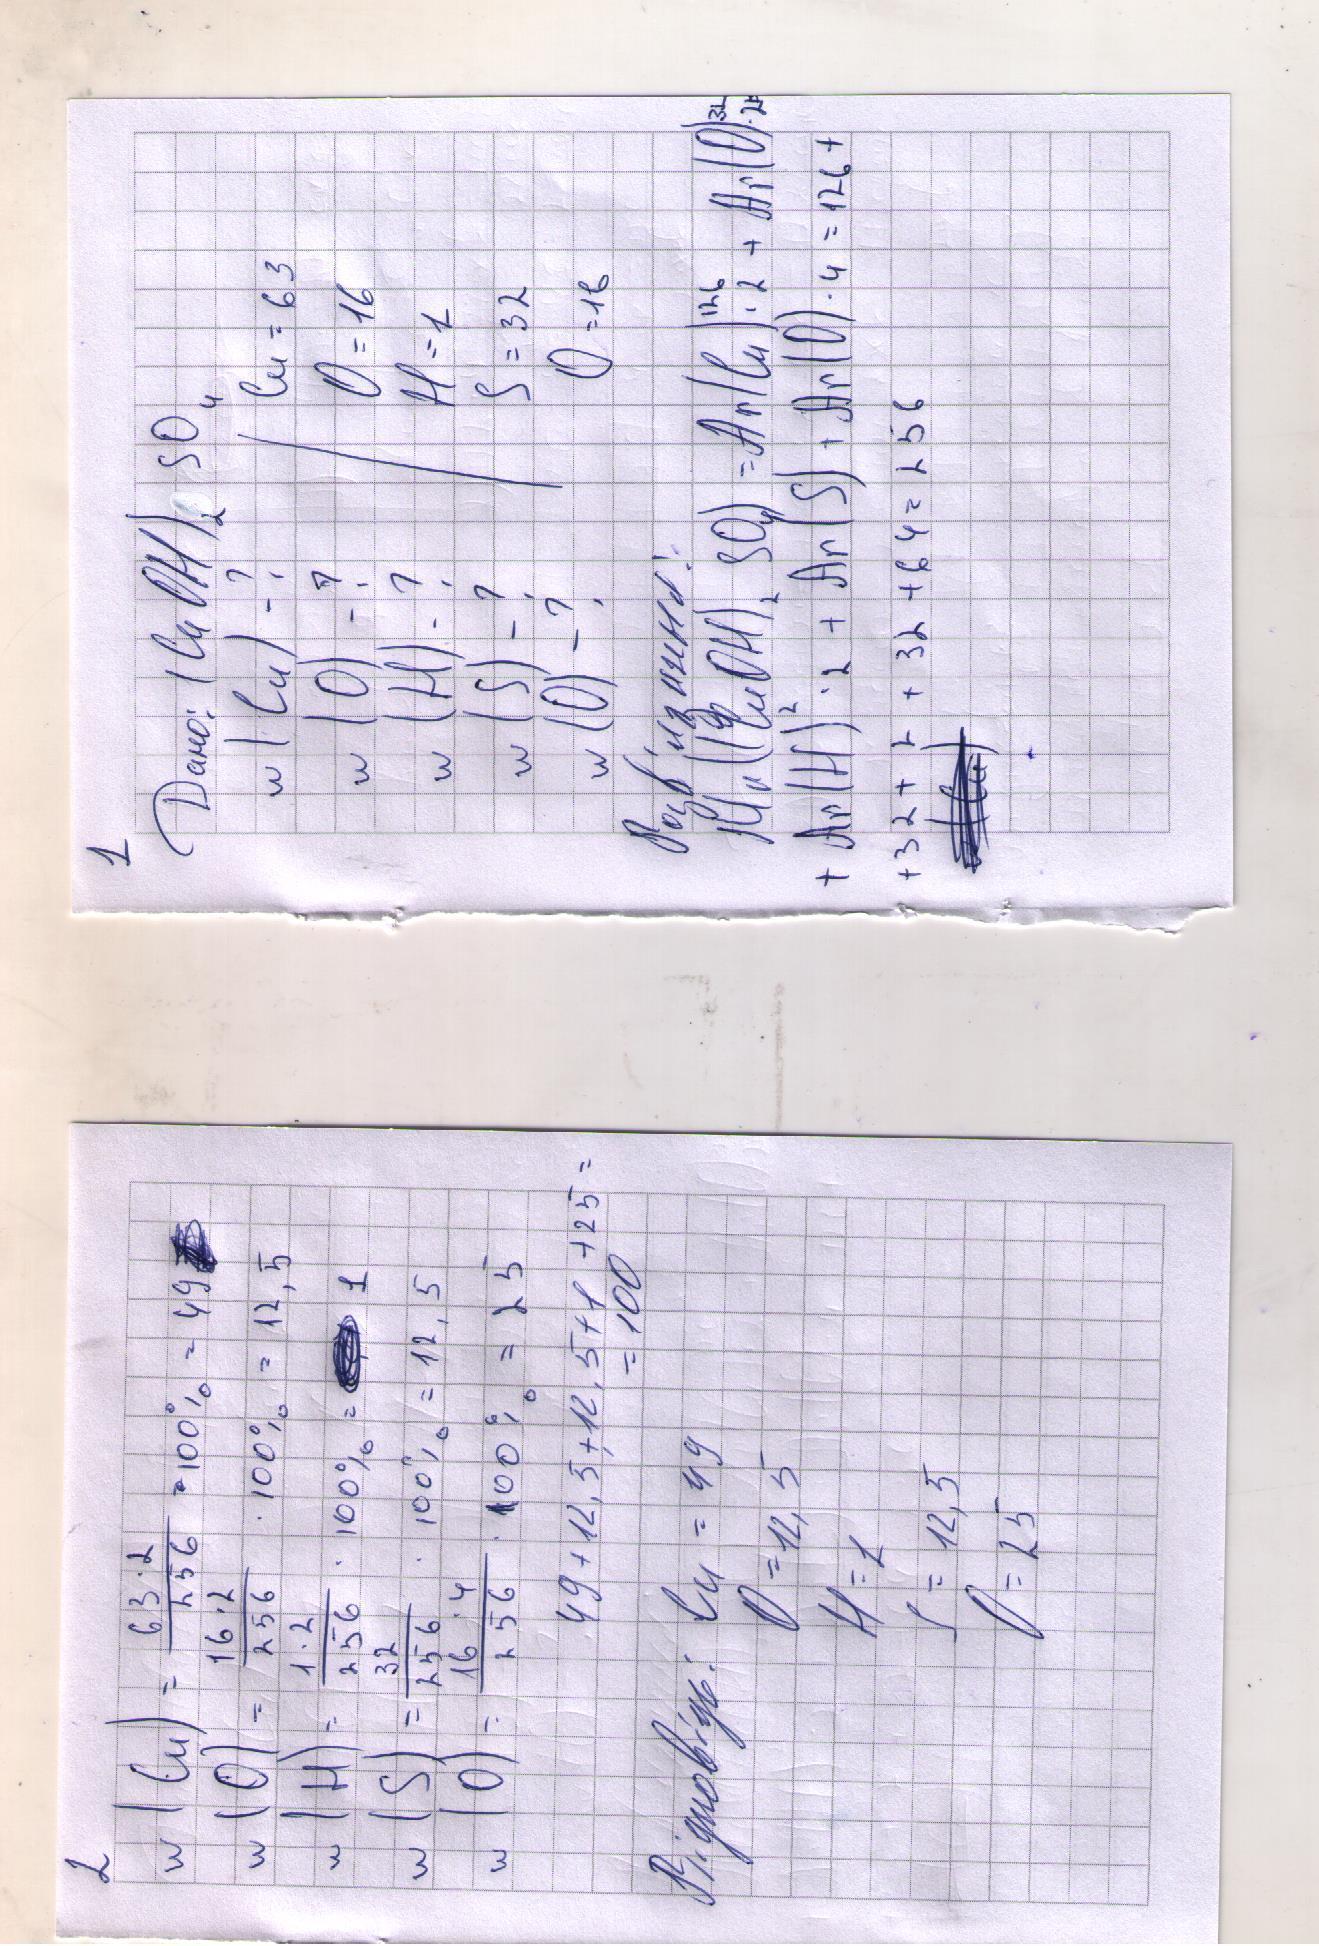 1
Дано: (CuOH)2 SO4
w (Cu) - ? Cu = 63
w (O) - ? O = 16
w (H) - ? H = 1
w (S) - ? S = 32
w (O) - ? O = 16
Розв'язання:
Mr ((CuOH)2 SO4) = Ar(Cu)126 · 2 + Ar(O)32 · 2+
+ Ar(H)2 · 2 + Ar(S) + Ar(O) · 4 = 126 +
+ 32 + 2 + 32 + 64 = 256
2
w (Cu) = 63·2/256 · 100% = 49
w (O) = 16·2/256 · 100% = 12,5
w (H) = 1·2/256 · 100% = 1
w (S) = 32/256 · 100% = 12,5
w (O) = 16·4/256 · 100% = 25
49 + 12,5 + 12,5 + 1 + 25 =
= 100
Відповідь: Cu = 49
O = 12,5
H = 1
S = 12,5
O = 25